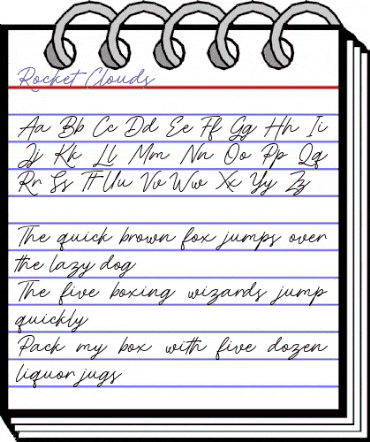 Rocket Clouds
Aa Bb Cc Dd Ee Ff Gg Hh Ii
Jj Kk Ll Mm Nn Oo Pp Qq
Rr Ss Tt Uu Vv Ww Xx Yy Zz
The quick brown fox jumps over
the lazy dog
The five boxing wizards jump
quickly
Pack my box with five dozen
liquor jugs